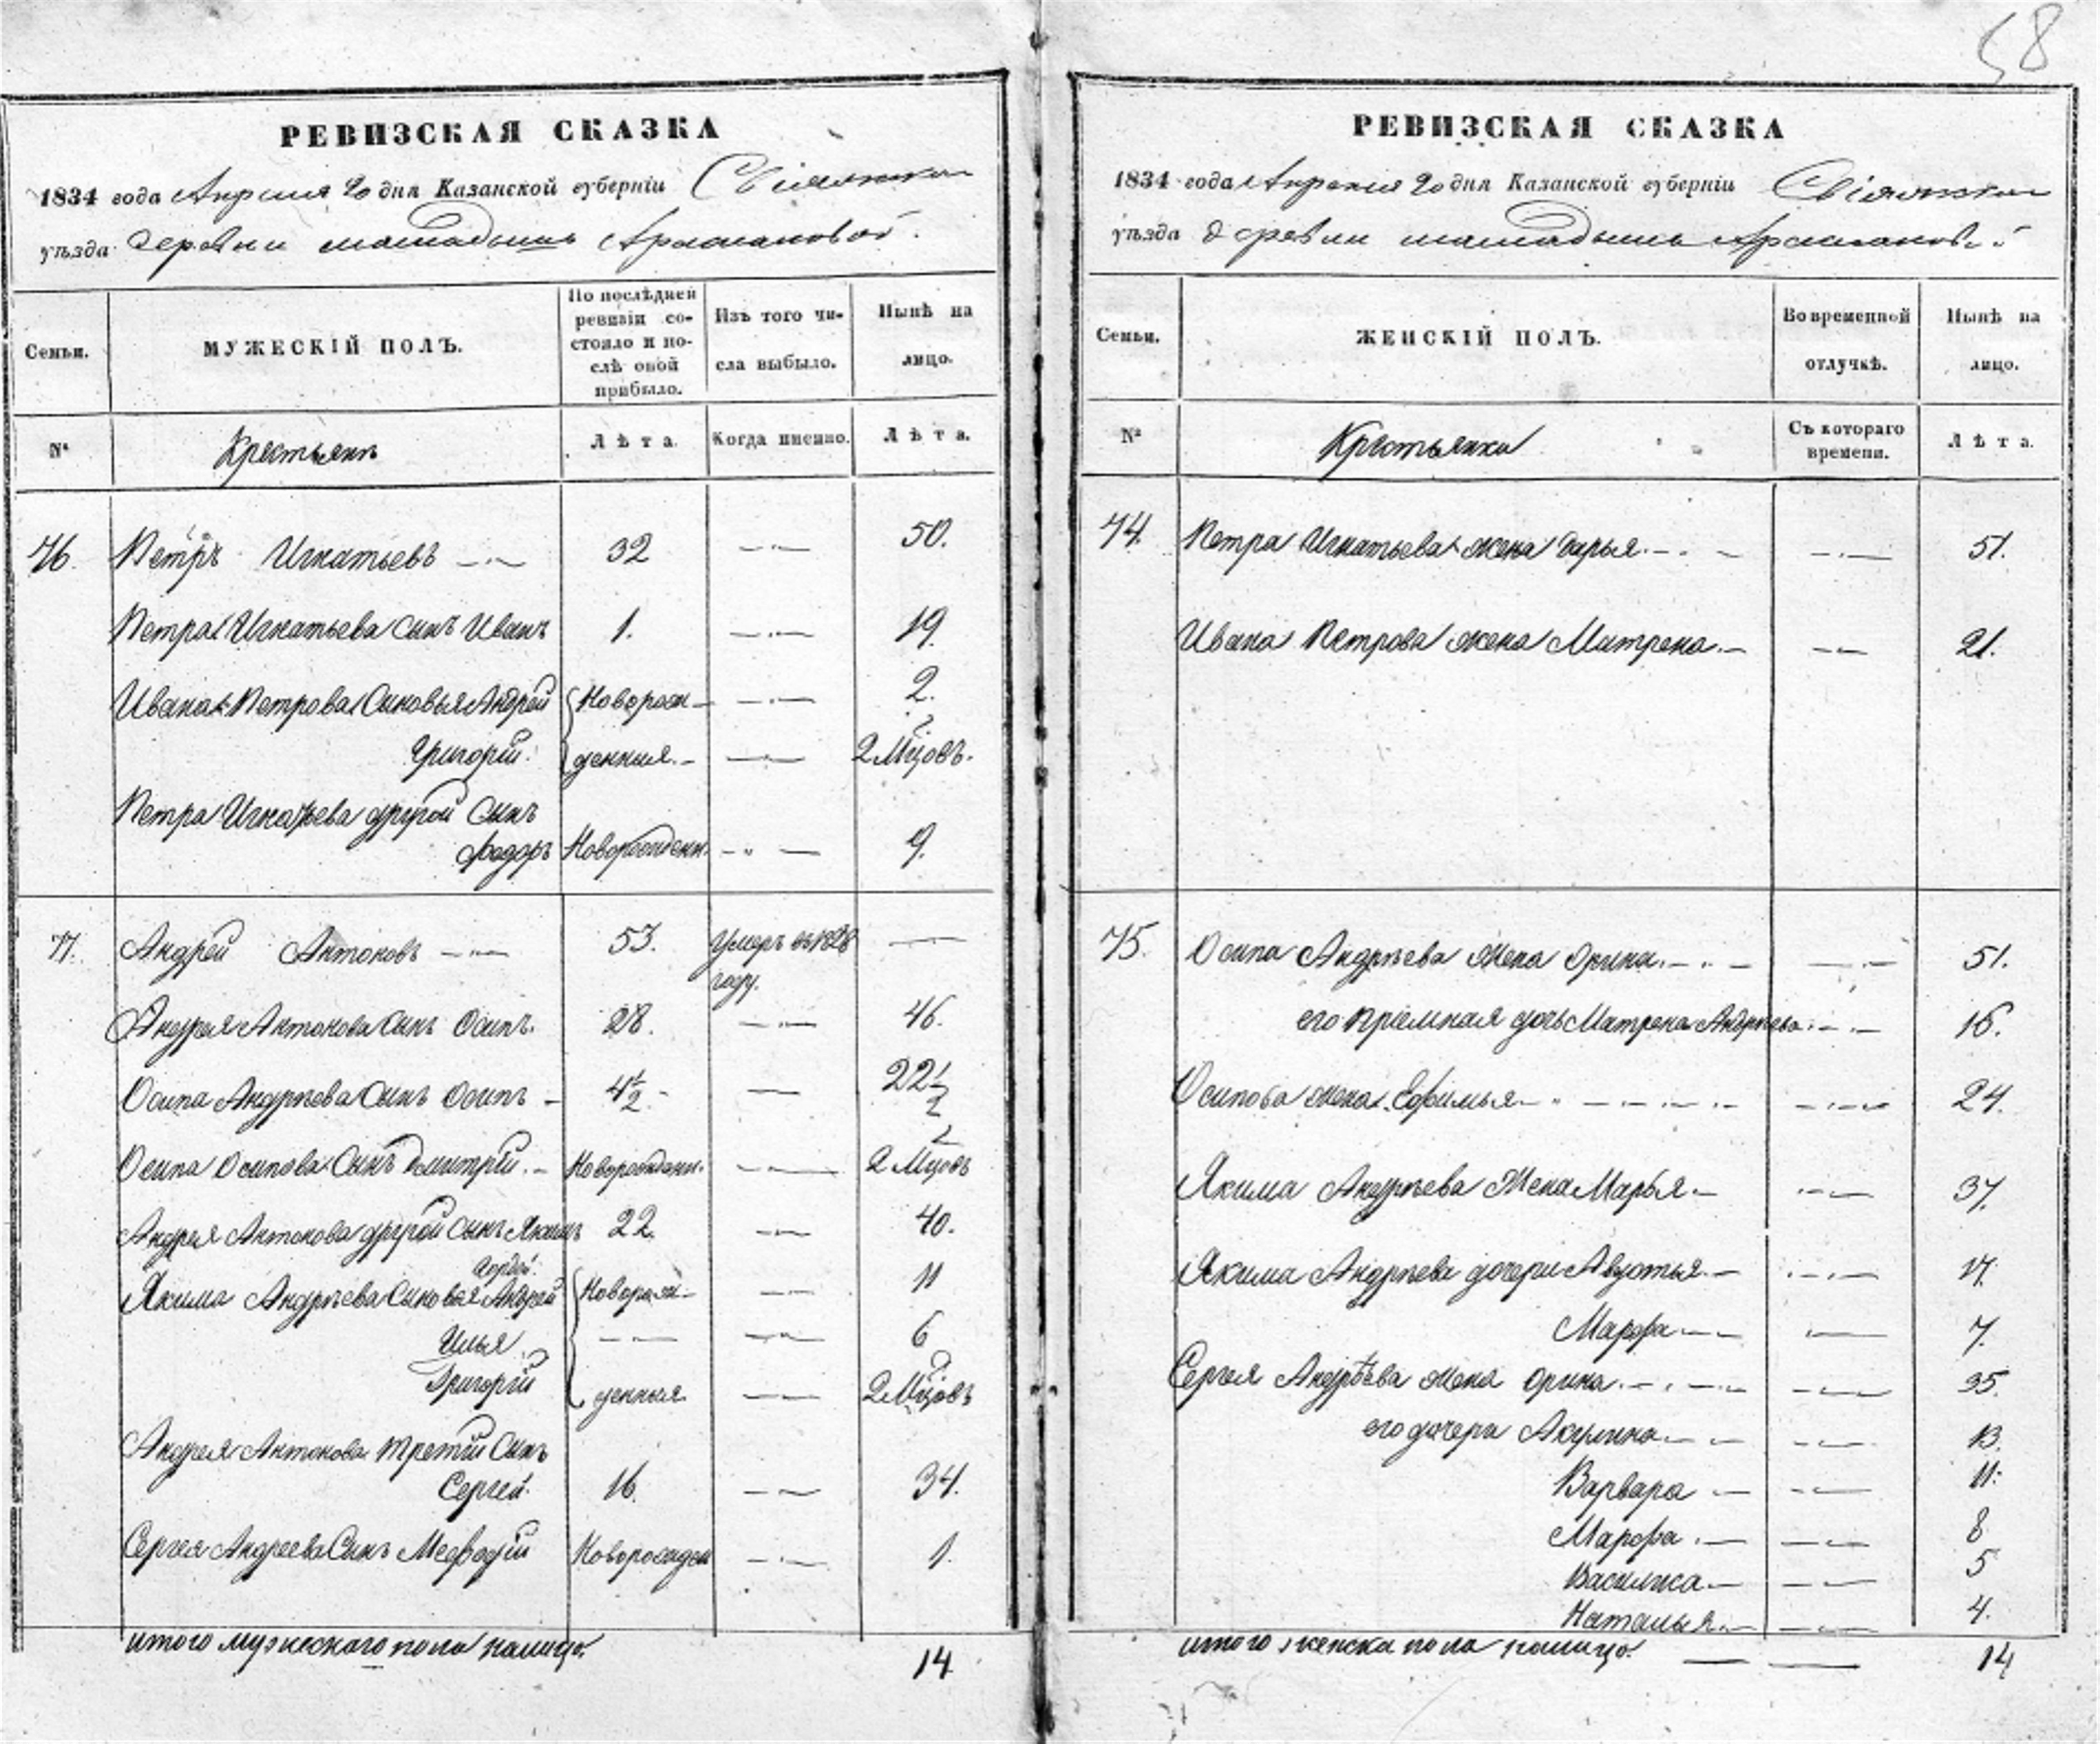 58
РЕВИЗСКАЯ СКАЗКА
1834 года Апреля 20 дня Казанской губерніи
уѣзда деревни
Семьи.
МУЖЕСКІЙ ПОЛЪ.
По послѣдней ревизіи состояло и послѣ оной прибыло.
Изъ того числа выбыло.
Нынѣ на лицо.
№
Крестьянъ
Лѣта.
Когда имянно.
Лѣта.
76. Петръ Игнатьевъ 32 50.
Петра Игнатьева сынъ Иванъ 1. 19.
Ивана Петрова Сыновья Андрей Новорож- 2.
Григорій. денныя. 2 Мцовъ.
Петра Игнатьева другой Сынъ
Федоръ Новорожден. 9.
77. Андрей Антоновъ 53. Умеръ въ 1828
году.
Андрея Антонова Сынъ Осипъ. 28. 46.
Осипа Андрѣева Сынъ Осипъ 4½. 22½
Осипа Осипова Сынъ Дмитрій. Новорожден. 2 Мцовъ
Андрея Антонова другой Сынъ Якимъ 22. 40.
Якима Андрѣева Сыновья Андрей Новорож- 11
Илья 6
Григорій денныя 2 Мцовъ
Андрея Антонова третій Сынъ
Сергей. 16. 34.
Сергея Андреева Сынъ Мефодій Новорожден 1.
итого мужескаго пола налицо. 14
РЕВИЗСКАЯ СКАЗКА
1834 года Апреля 20 дня Казанской губерніи
уѣзда деревни
Семьи.
ЖЕНСКІЙ ПОЛЪ.
Во временной отлучкѣ.
Нынѣ на лицо.
№
Крестьянки
Съ котораго времени.
Лѣта.
74. Петра Игнатьева жена Дарья. 51.
Ивана Петрова жена Матрена. 21.
75. Осипа Андрѣева Жена Орина. 51.
его пріемная дочь Матрена Андрѣева. 16.
Осипова жена Ефимья 24.
Якима Андрѣева Жена Марья 37.
Якима Андрѣева дочери Авдотья 17.
Марфа 7.
Сергея Андрѣева жена Орина. 35.
его дочери Акулина 13.
Варвара 11.
Марфа. 8
Василиса 5
Наталья 4.
итого женска пола налицо. 14